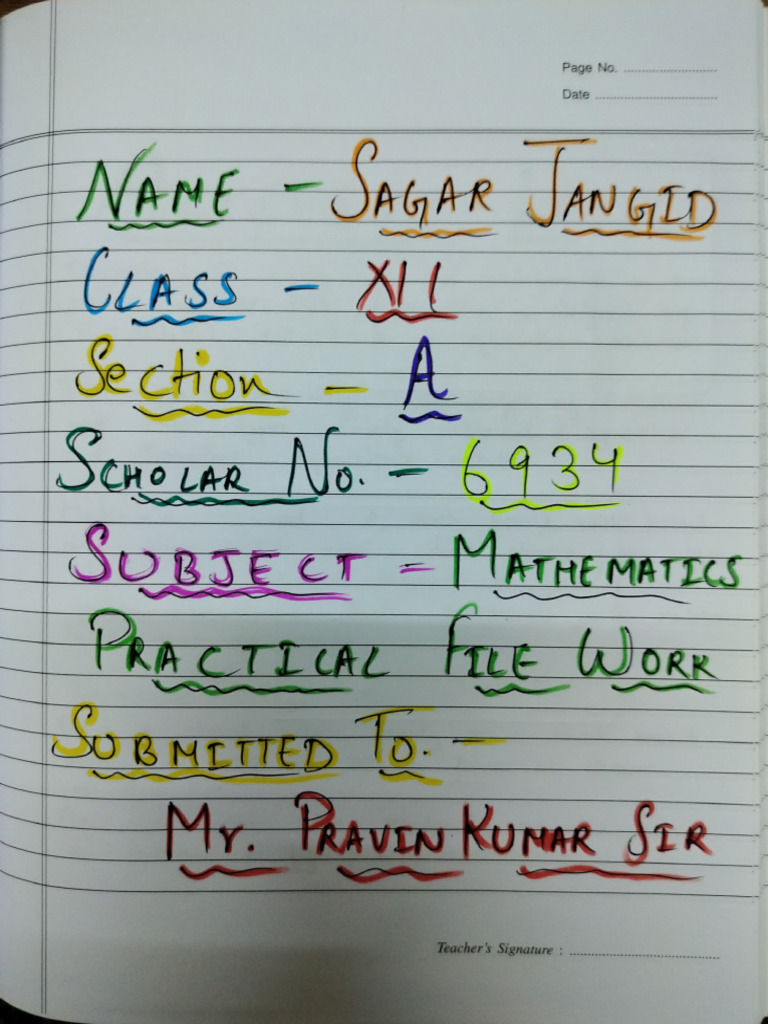 Page No. ..........................
Date ..................................
NAME - SAGAR JANGID
CLASS - XII
Section - A
SCHOLAR No. - 6934
SUBJECT - MATHEMATICS
PRACTICAL FILE WORK
SUBMITTED To. -
Mr. PRAVIN KUMAR SIR
Teacher's Signature : ..........................................